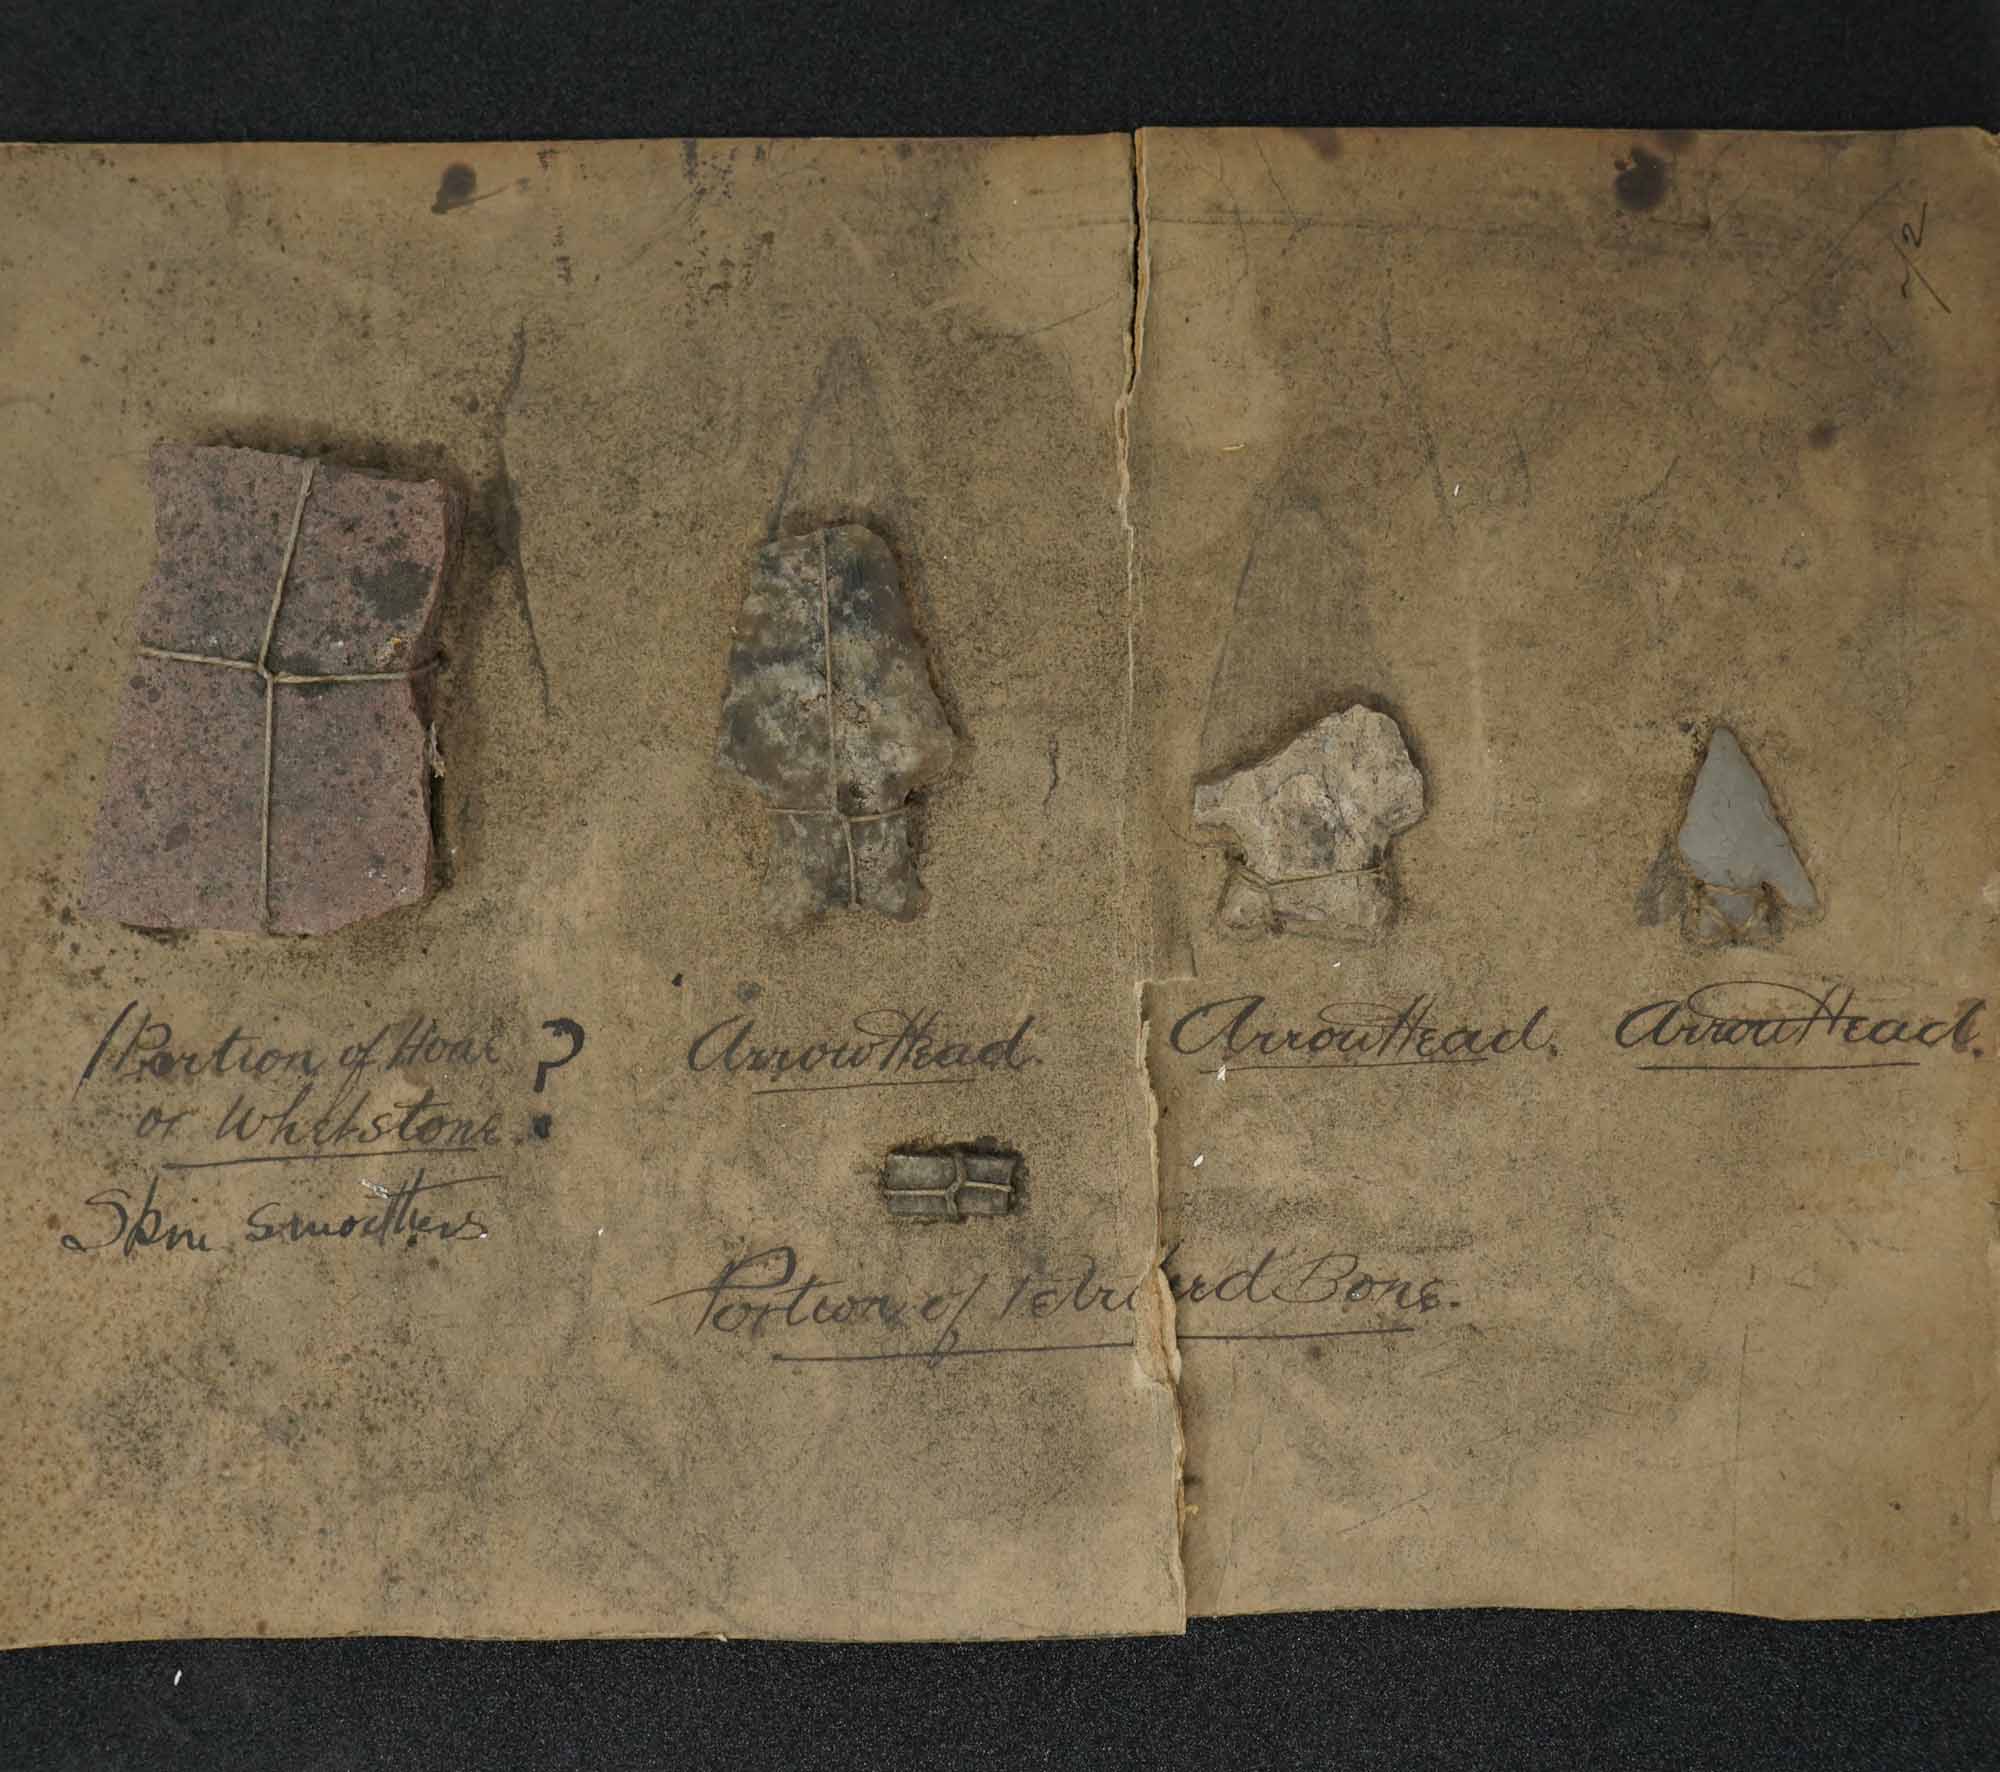 12
Portion of Hone ?
or Whetstone.
Skin Smoothers
Arrow Head.
Arrow Head.
Arrow Head.
Portion of Petrified Bone.